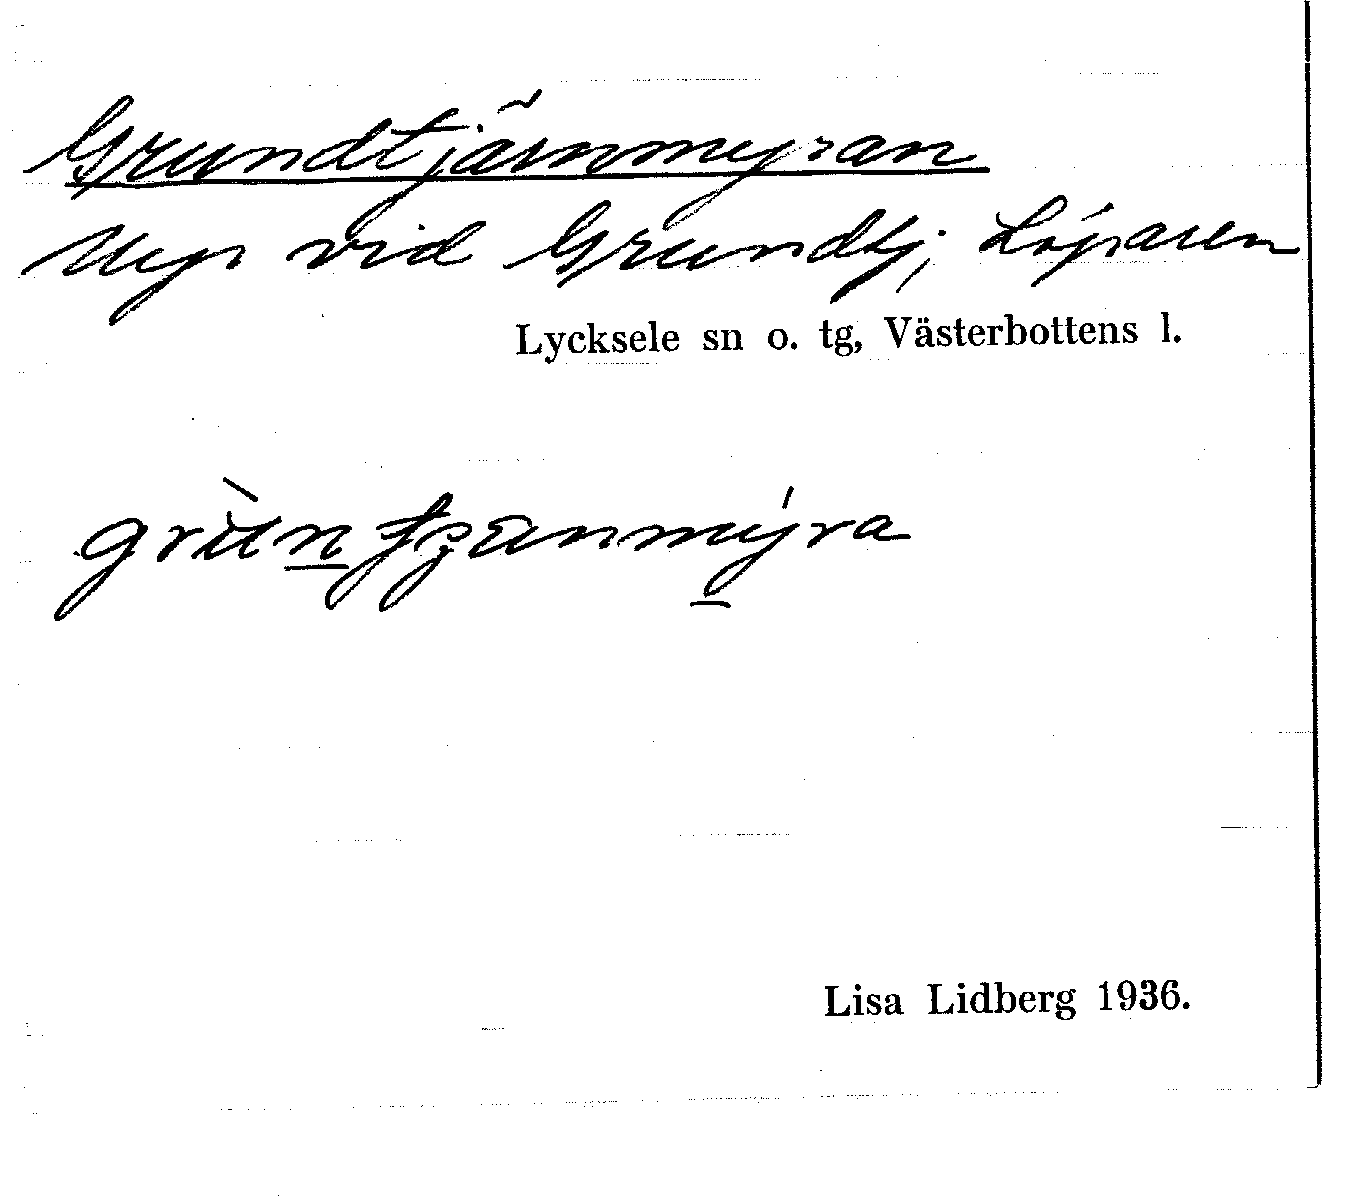 Grundtjärnmyran
Myr vid Grundtj, Löparen
Lycksele sn o. tg, Västerbottens l.
Lisa Lidberg 1936.